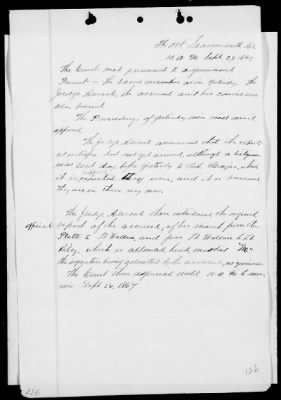 Fort Leavenworth Ks
10 a m Sept 23, 1867
The Court met pursuant to adjournment
Present - the same members as yesterday, the
Judge Advocate, the accused and his counsel were
also present
The Proceedings of yesterday were read and
approved
The Judge Advocate announced that the expected
witnesses had not yet arrived, although a telegram
was sent day before yesterday to Fort Harker, where
it is supposed they were, and it is presumed
they are on their way now.
The Judge Advocate then introduced the original
official report of the accused, of his march from the
Platte to Ft Wallace, and from Ft Wallace to Ft
Riley, which is appended hereto marked
the signature being admitted by the accused, as genuine.
The Court then adjourned until 10 a. m. to mor-
row Sept 24, 1867
126
126